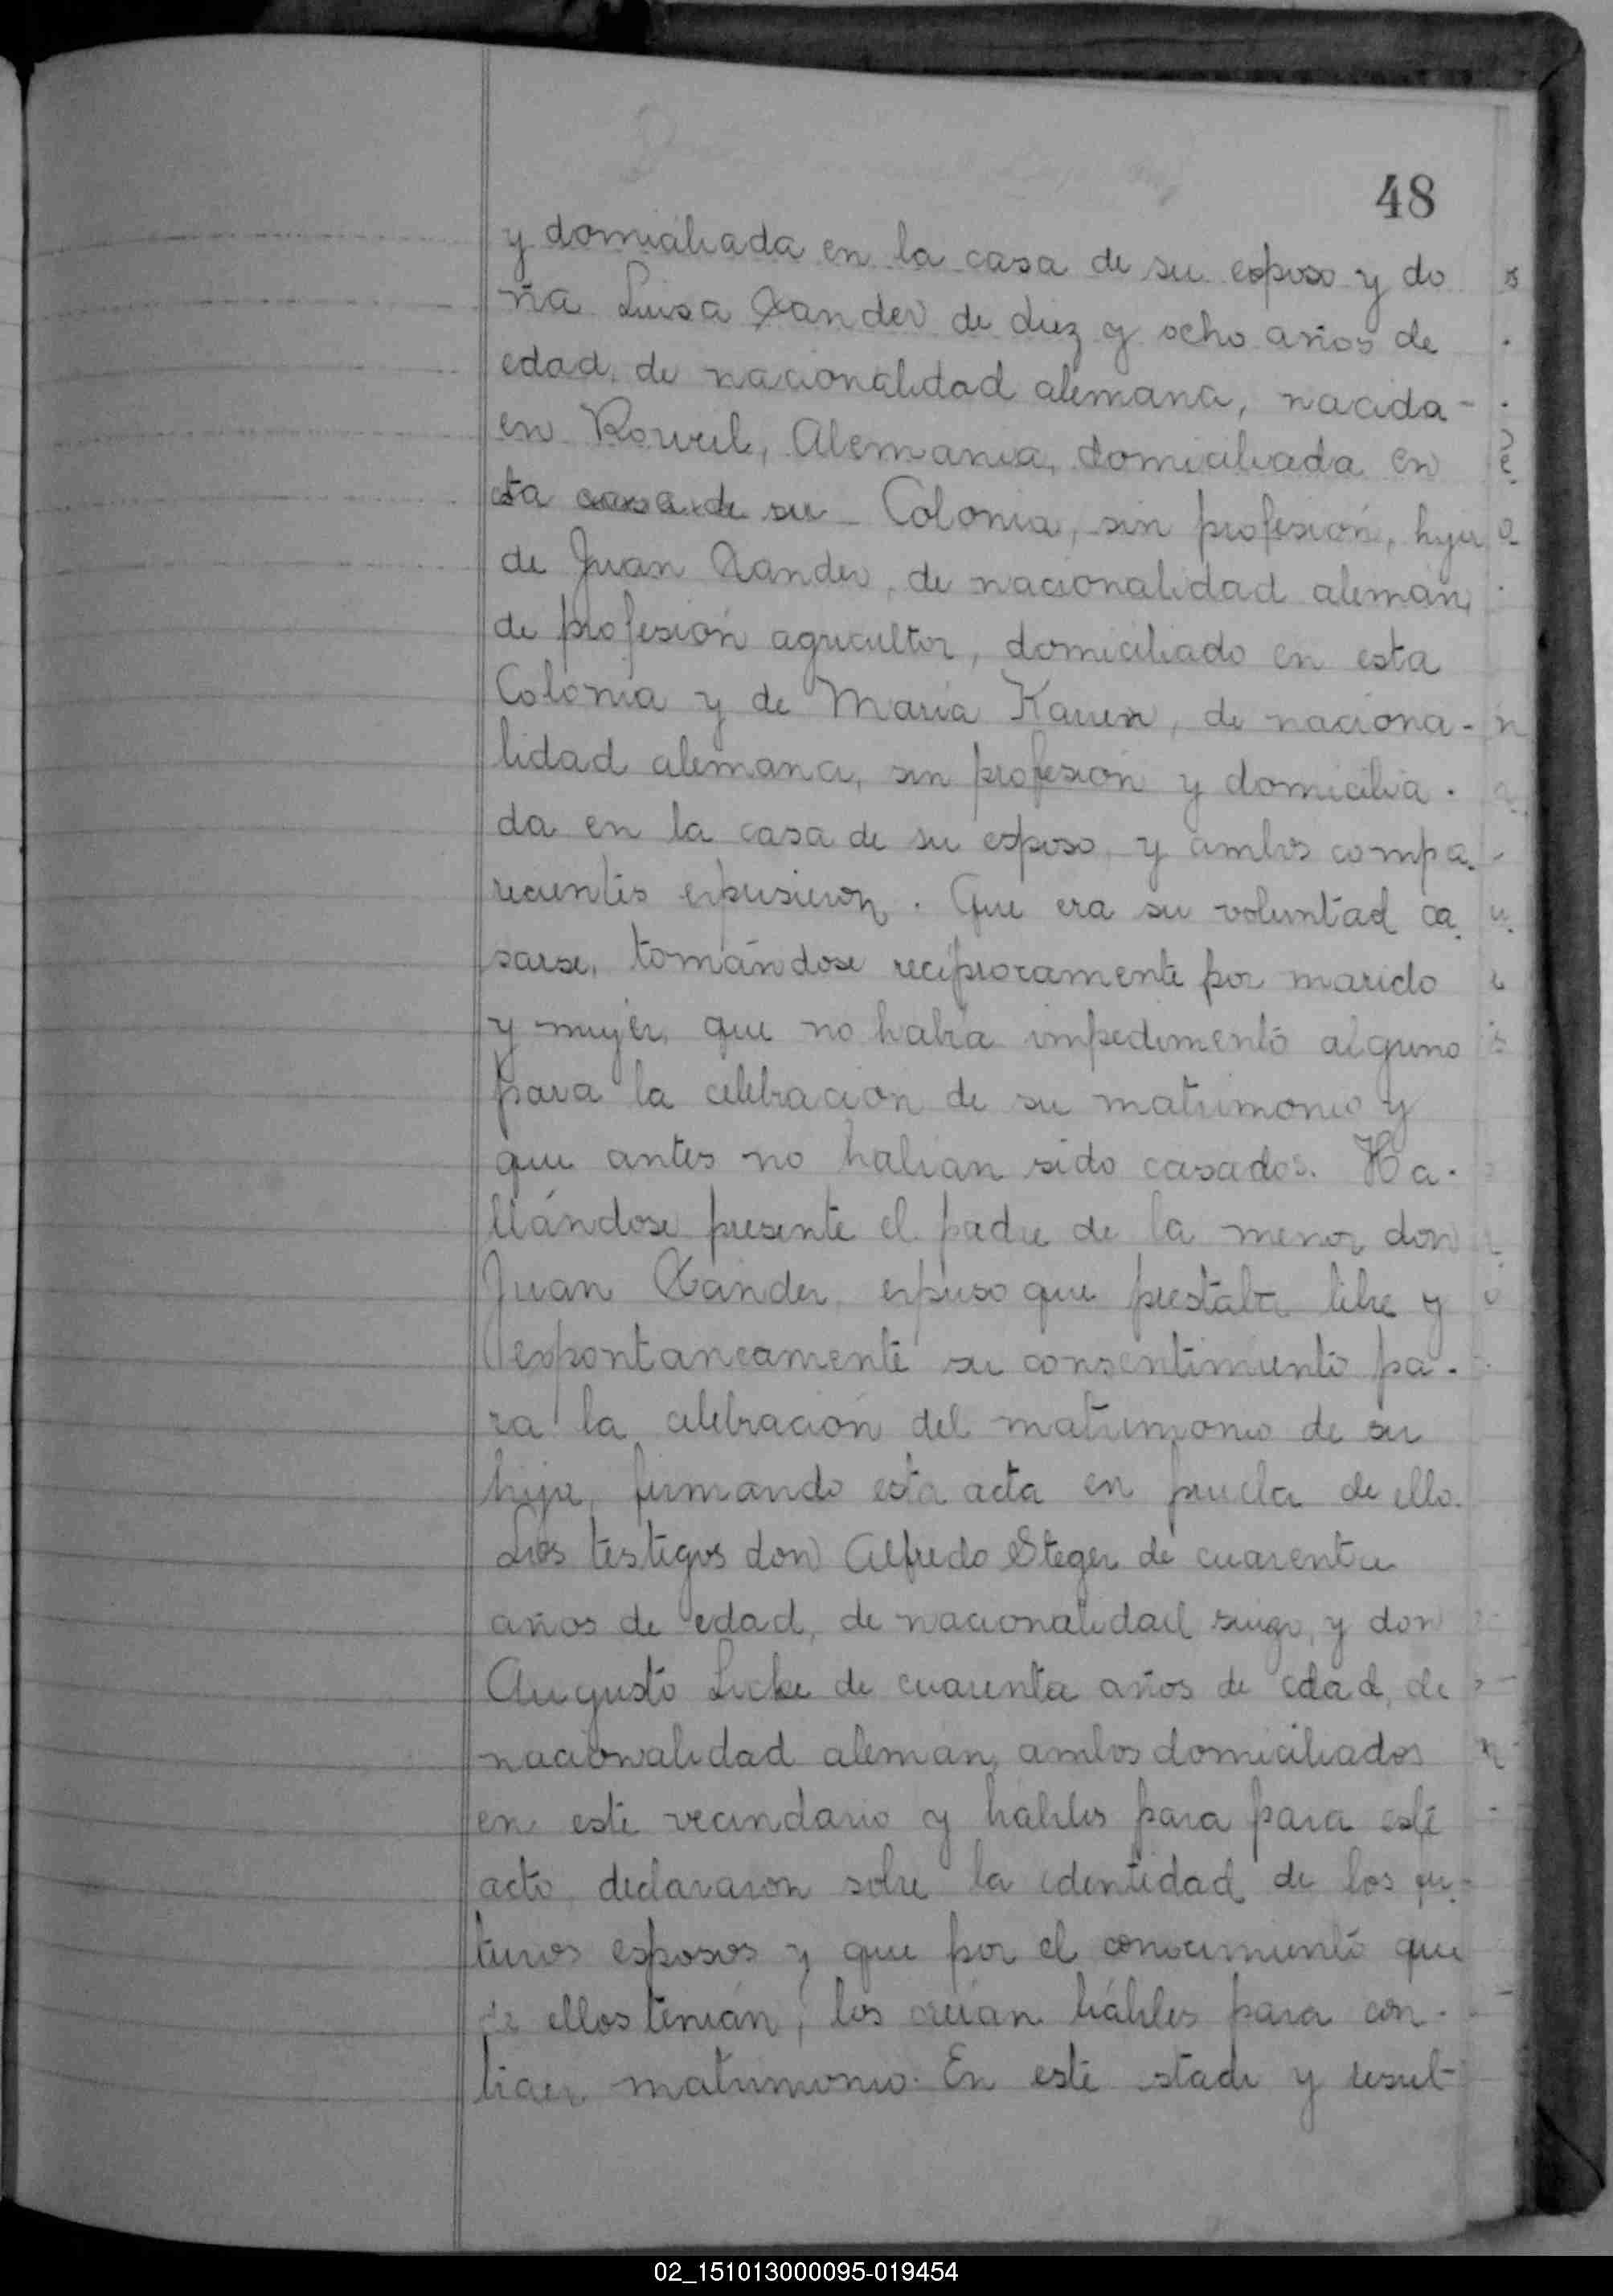 48
y domiciliada en la casa de su esposo y do
ña Luisa Xander de diez y ocho años de
edad, de nacionalidad alemana, nacida-
en Rorweil, Alemania, domiciliada en
esta casa de su Colonia, sin profesión, hija
de Juan Xander, de nacionalidad alemán,
de profesión agricultor, domiciliado en esta
Colonia y de María Karrer, de naciona-
lidad alemana, sin profesión y domicilia-
da en la casa de su esposo, y ambos compa-
recientes expusieron. Que era su voluntad ca-
sarse, tomándose recíprocamente por marido
y mujer, que no había impedimento alguno
para la celebración de su matrimonio y
que antes no habían sido casados. Ha-
llándose presente el padre de la menor don
Juan Xander, expuso que prestaba libre y
expontaneamente su consentimiento pa-
ra la celebración del matrimonio de su
hija, firmando esta acta en prueba de ello.
Los testigos don Alfredo Steger de cuarenta
años de edad, de nacionalidad suizo, y don
Augusto Licke de cuarenta años de edad, de
nacionalidad alemán, ambos domiciliados
en este vecindario y hábiles para para este
acto, declararon sobre la identidad de los fu-
turos esposos y que por el conocimiento que
de ellos tenían, los creían hábiles para con-
traer matrimonio. En este stado y result
02_151013000095-019454